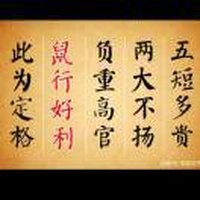 五短多贵
两大不扬
负重高官
鼠行好利
此为定格